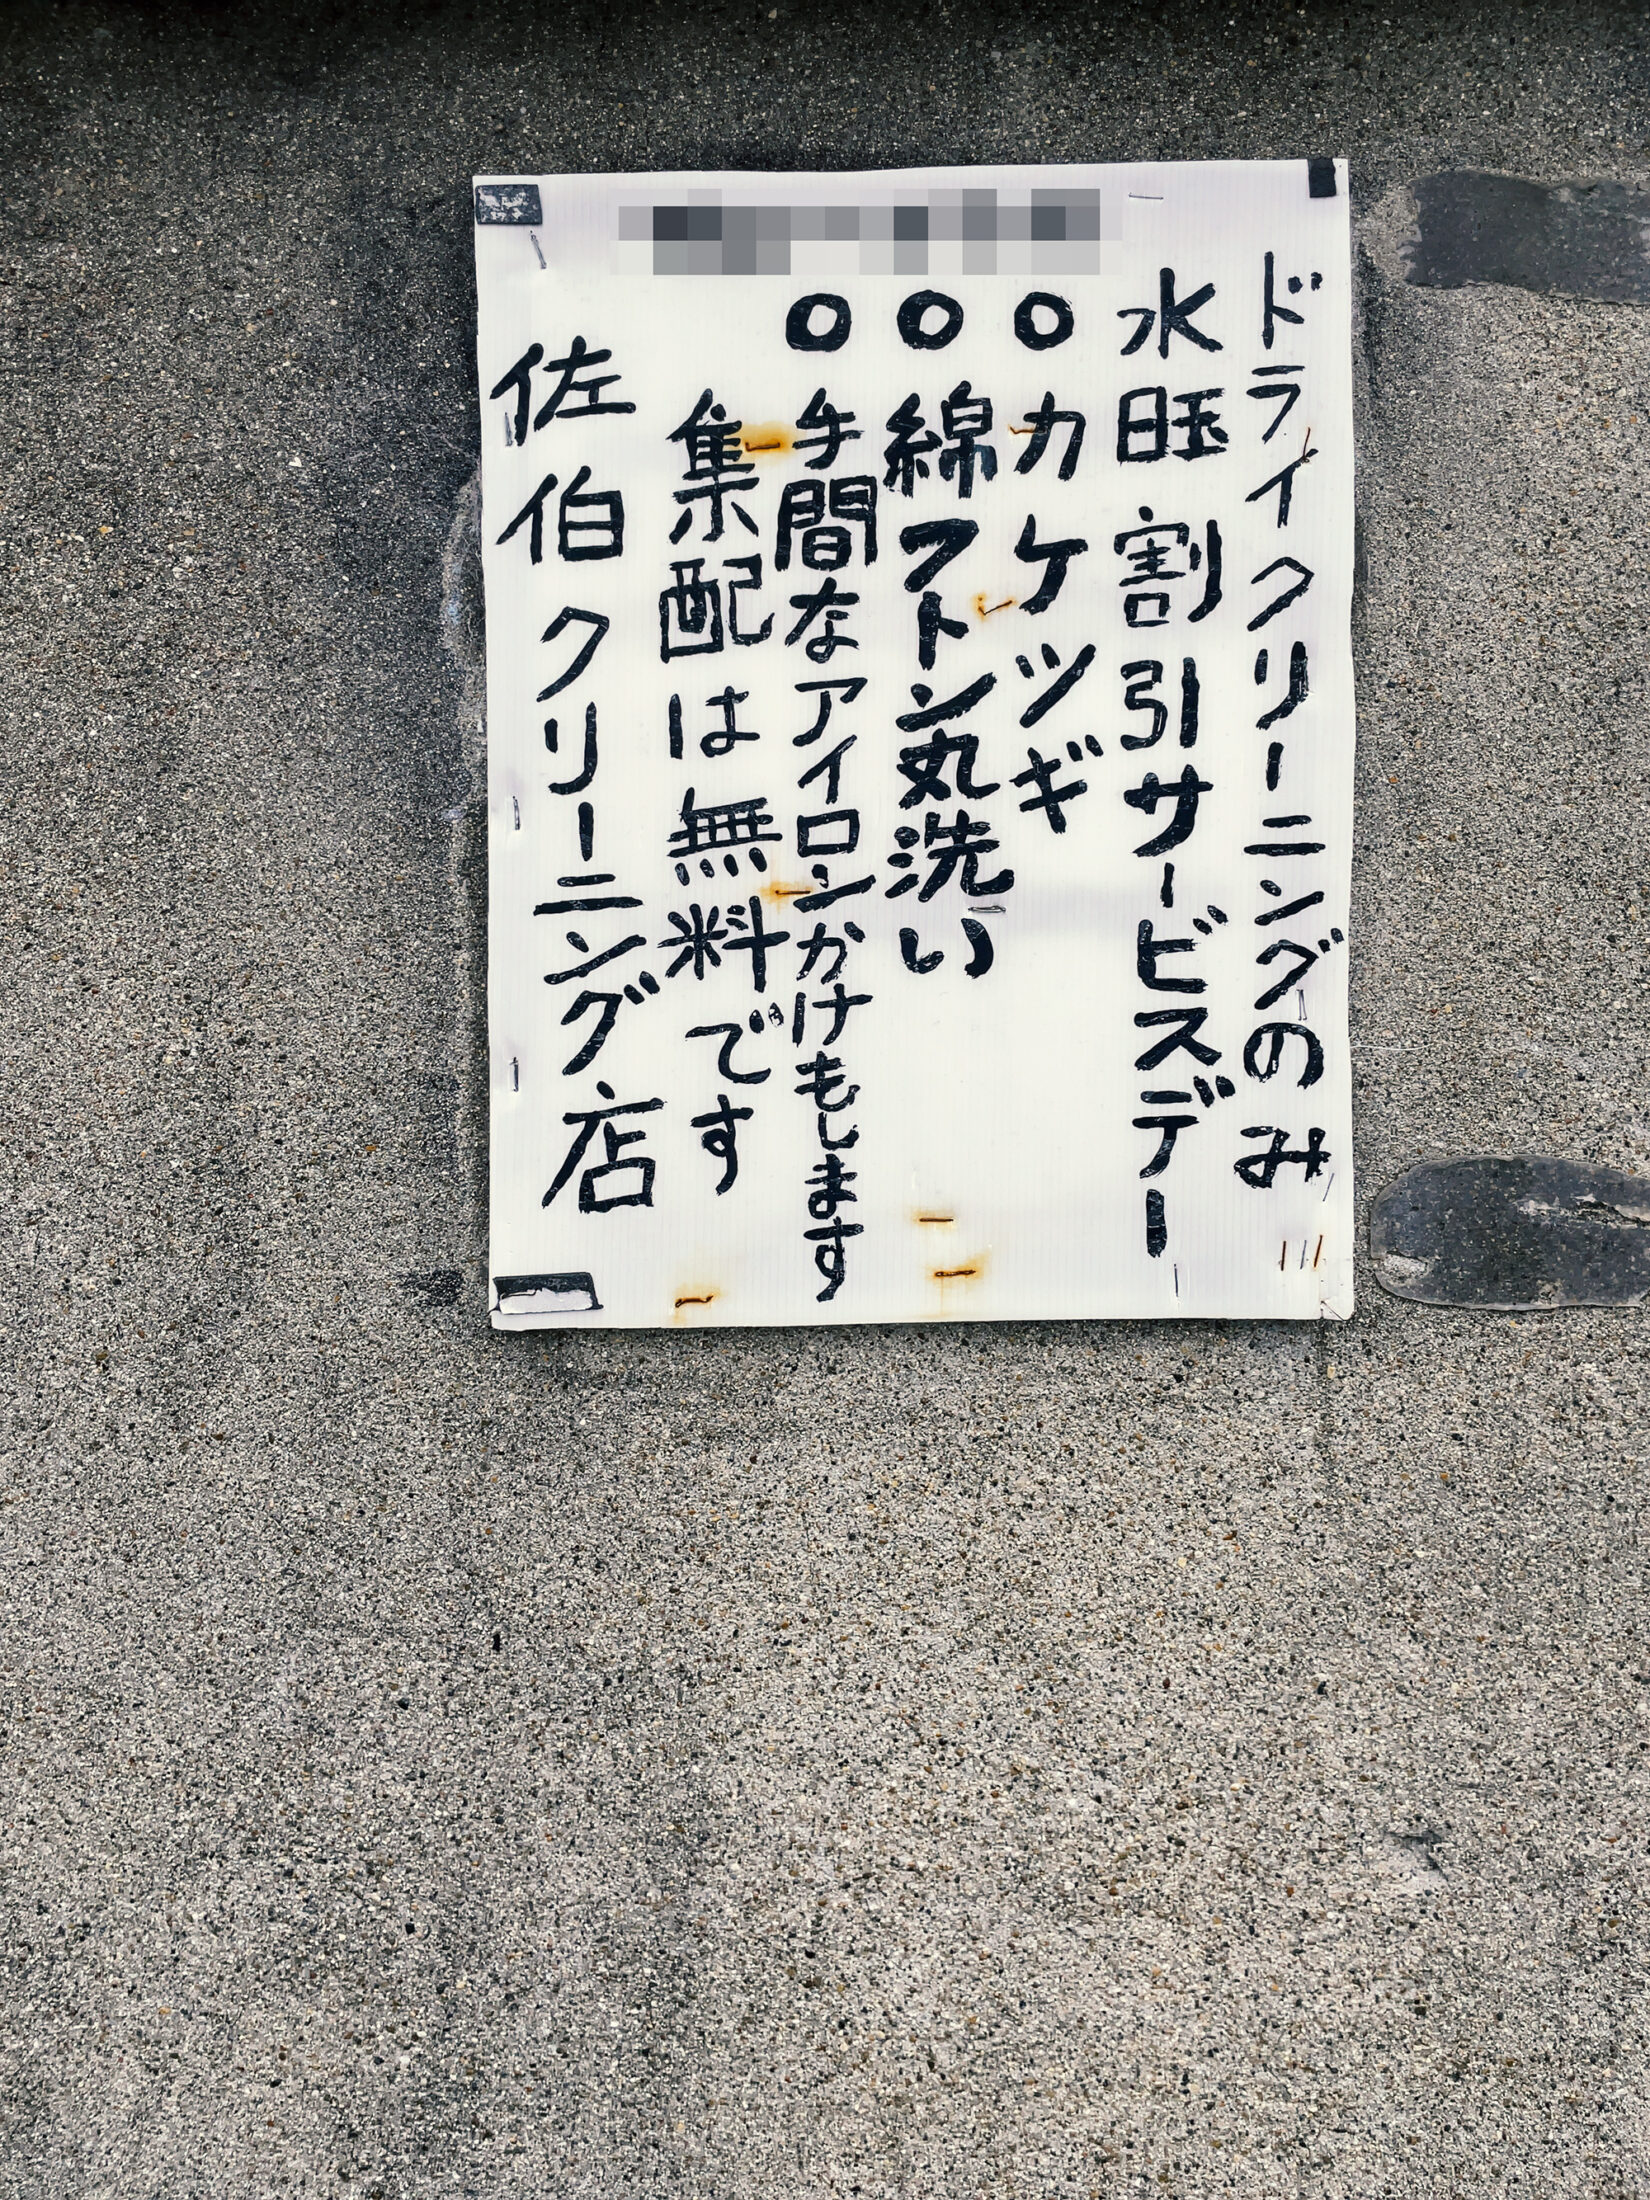 ドライクリーニングのみ
水旺割引サービスデー
○カケツギ
○綿フトン丸洗い
○手間なアイロンかけもします
集配は無料です
佐伯クリーニング店